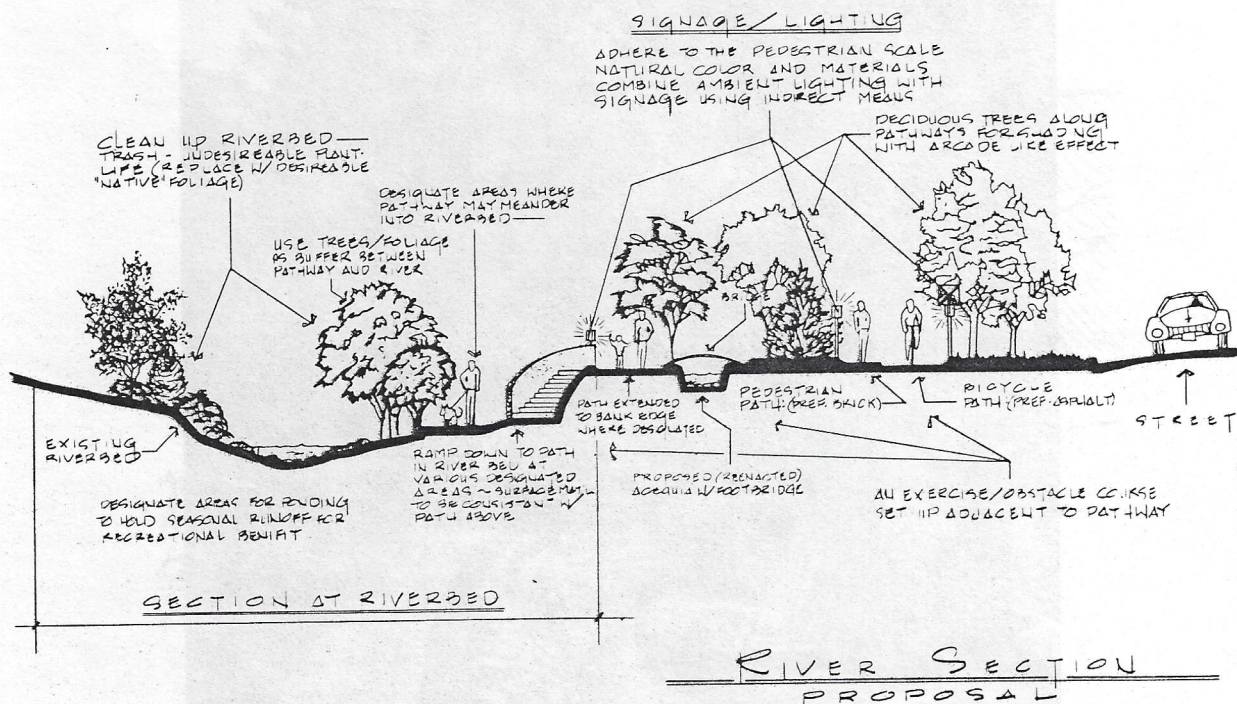 SIGNAGE/LIGHTING
ADHERE TO THE PEDESTRIAN SCALE
NATURAL COLOR AND MATERIALS
COMBINE AMBIENT LIGHTING WITH
SIGNAGE USING INDIRECT MEANS
DECIDUOUS TREES ALONG
PATHWAYS FOR SHADING
WITH ARCADE LIKE EFFECT
CLEAN UP RIVERBED
TRASH - UNDESIREABLE PLANT-
LIFE (REPLACE W/ DESIREABLE
"NATIVE" FOLIAGE)
DESIGNATE AREAS WHERE
PATHWAY MAY MEANDER
INTO RIVERBED
USE TREES/FOLIAGE
AS BUFFER BETWEEN
PATHWAY AND RIVER
BRIDGE
EXISTING
RIVERBED
RAMP DOWN TO PATH
IN RIVER BED AT
VARIOUS DESIGNATED
AREAS ~ SURFACE MAT'L
TO BE CONSISTANT W/
PATH ABOVE
PATH EXTENDED
TO BANK EDGE
WHERE DESIGNATED
PEDESTRIAN
PATH: (PREF. BRICK)
BICYCLE
PATH (PREF. ASPHALT)
STREET
PROPOSED (REENACTED)
ACEQUIA W/ FOOTBRIDGE
AN EXERCISE/OBSTACLE COURSE
SET UP ADJACENT TO PATHWAY
DESIGNATE AREAS FOR PONDING
TO HOLD SEASONAL RUNOFF FOR
RECREATIONAL BENIFIT
SECTION AT RIVERBED
RIVER SECTION
PROPOSAL